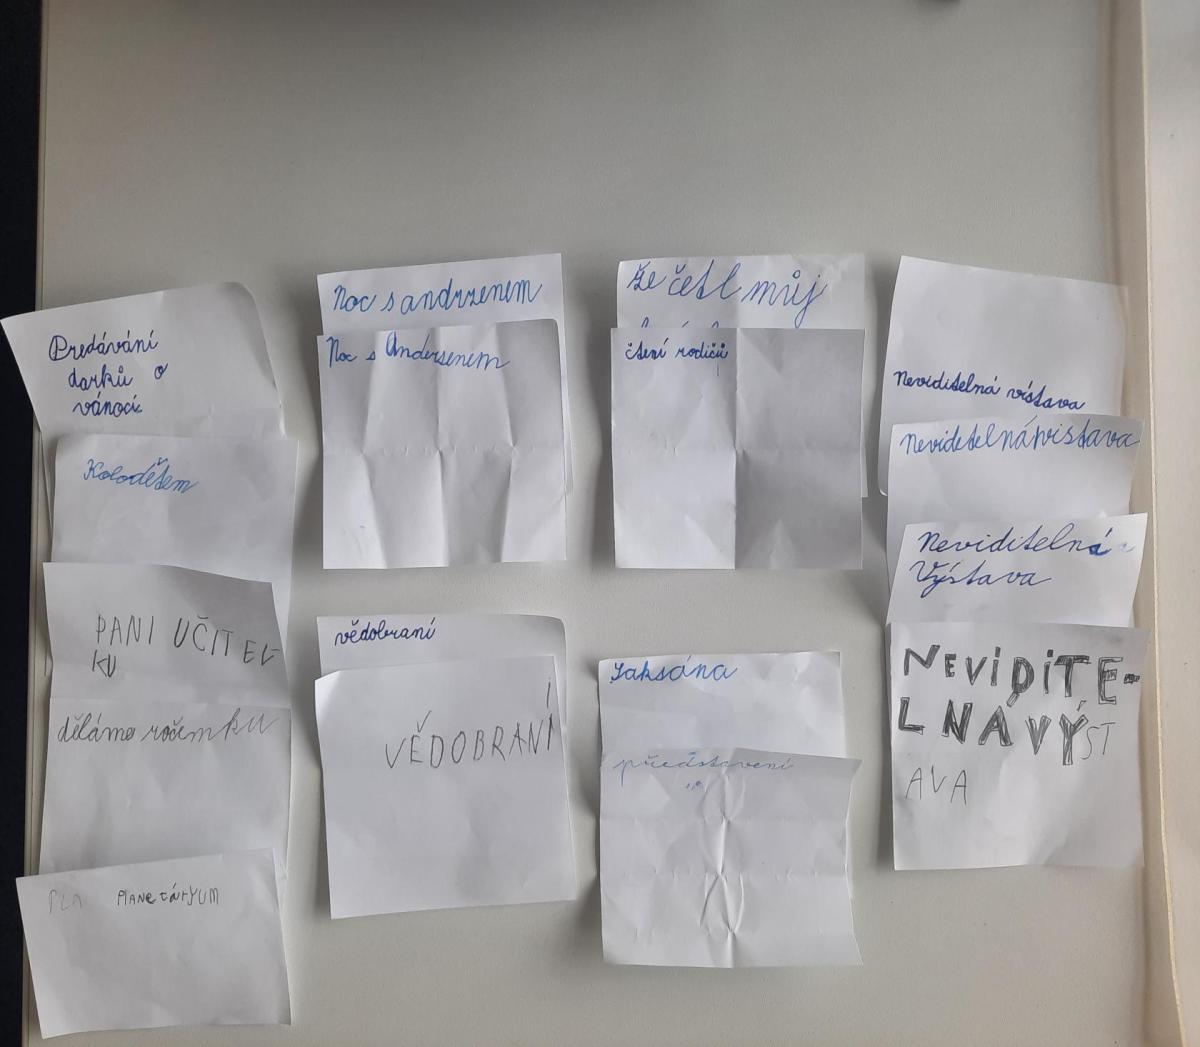 Predávání
darků o
vánoci
Koloděťem
PANI UČITEL
KU
děláme ročenku
PLA PLANetárYUM
Noc s andrzenem
Noc s Andersenem
vědobraní
VĚDOBRANÍ
že četl můj
čtení rodičů
Saksána
představení
Neviditelná vístava
Nevidetelná vistava
Neviditelná
Výstava
NEVIDITE-
LNÁ VÝST
AVA